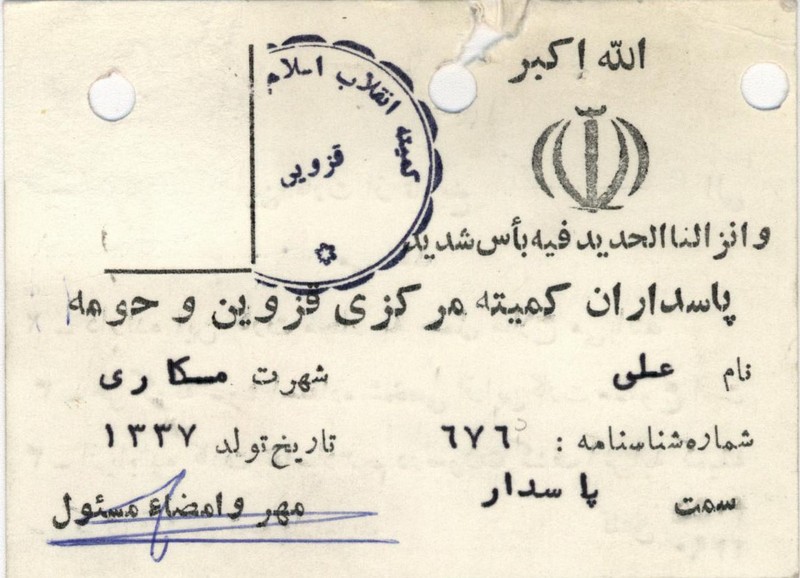 الله اکبر
کمیته انقلاب اسلام
قزوین
و انزلنا الحدید فیه بأس شدید
پاسداران کمیته مرکزی قزوین و حومه
نام علی شهرت مسکاری
شماره شناسنامه : ٦٧٦ تاریخ تولد ١٣٣٧
سمت پاسدار
مهر و امضاء مسئول